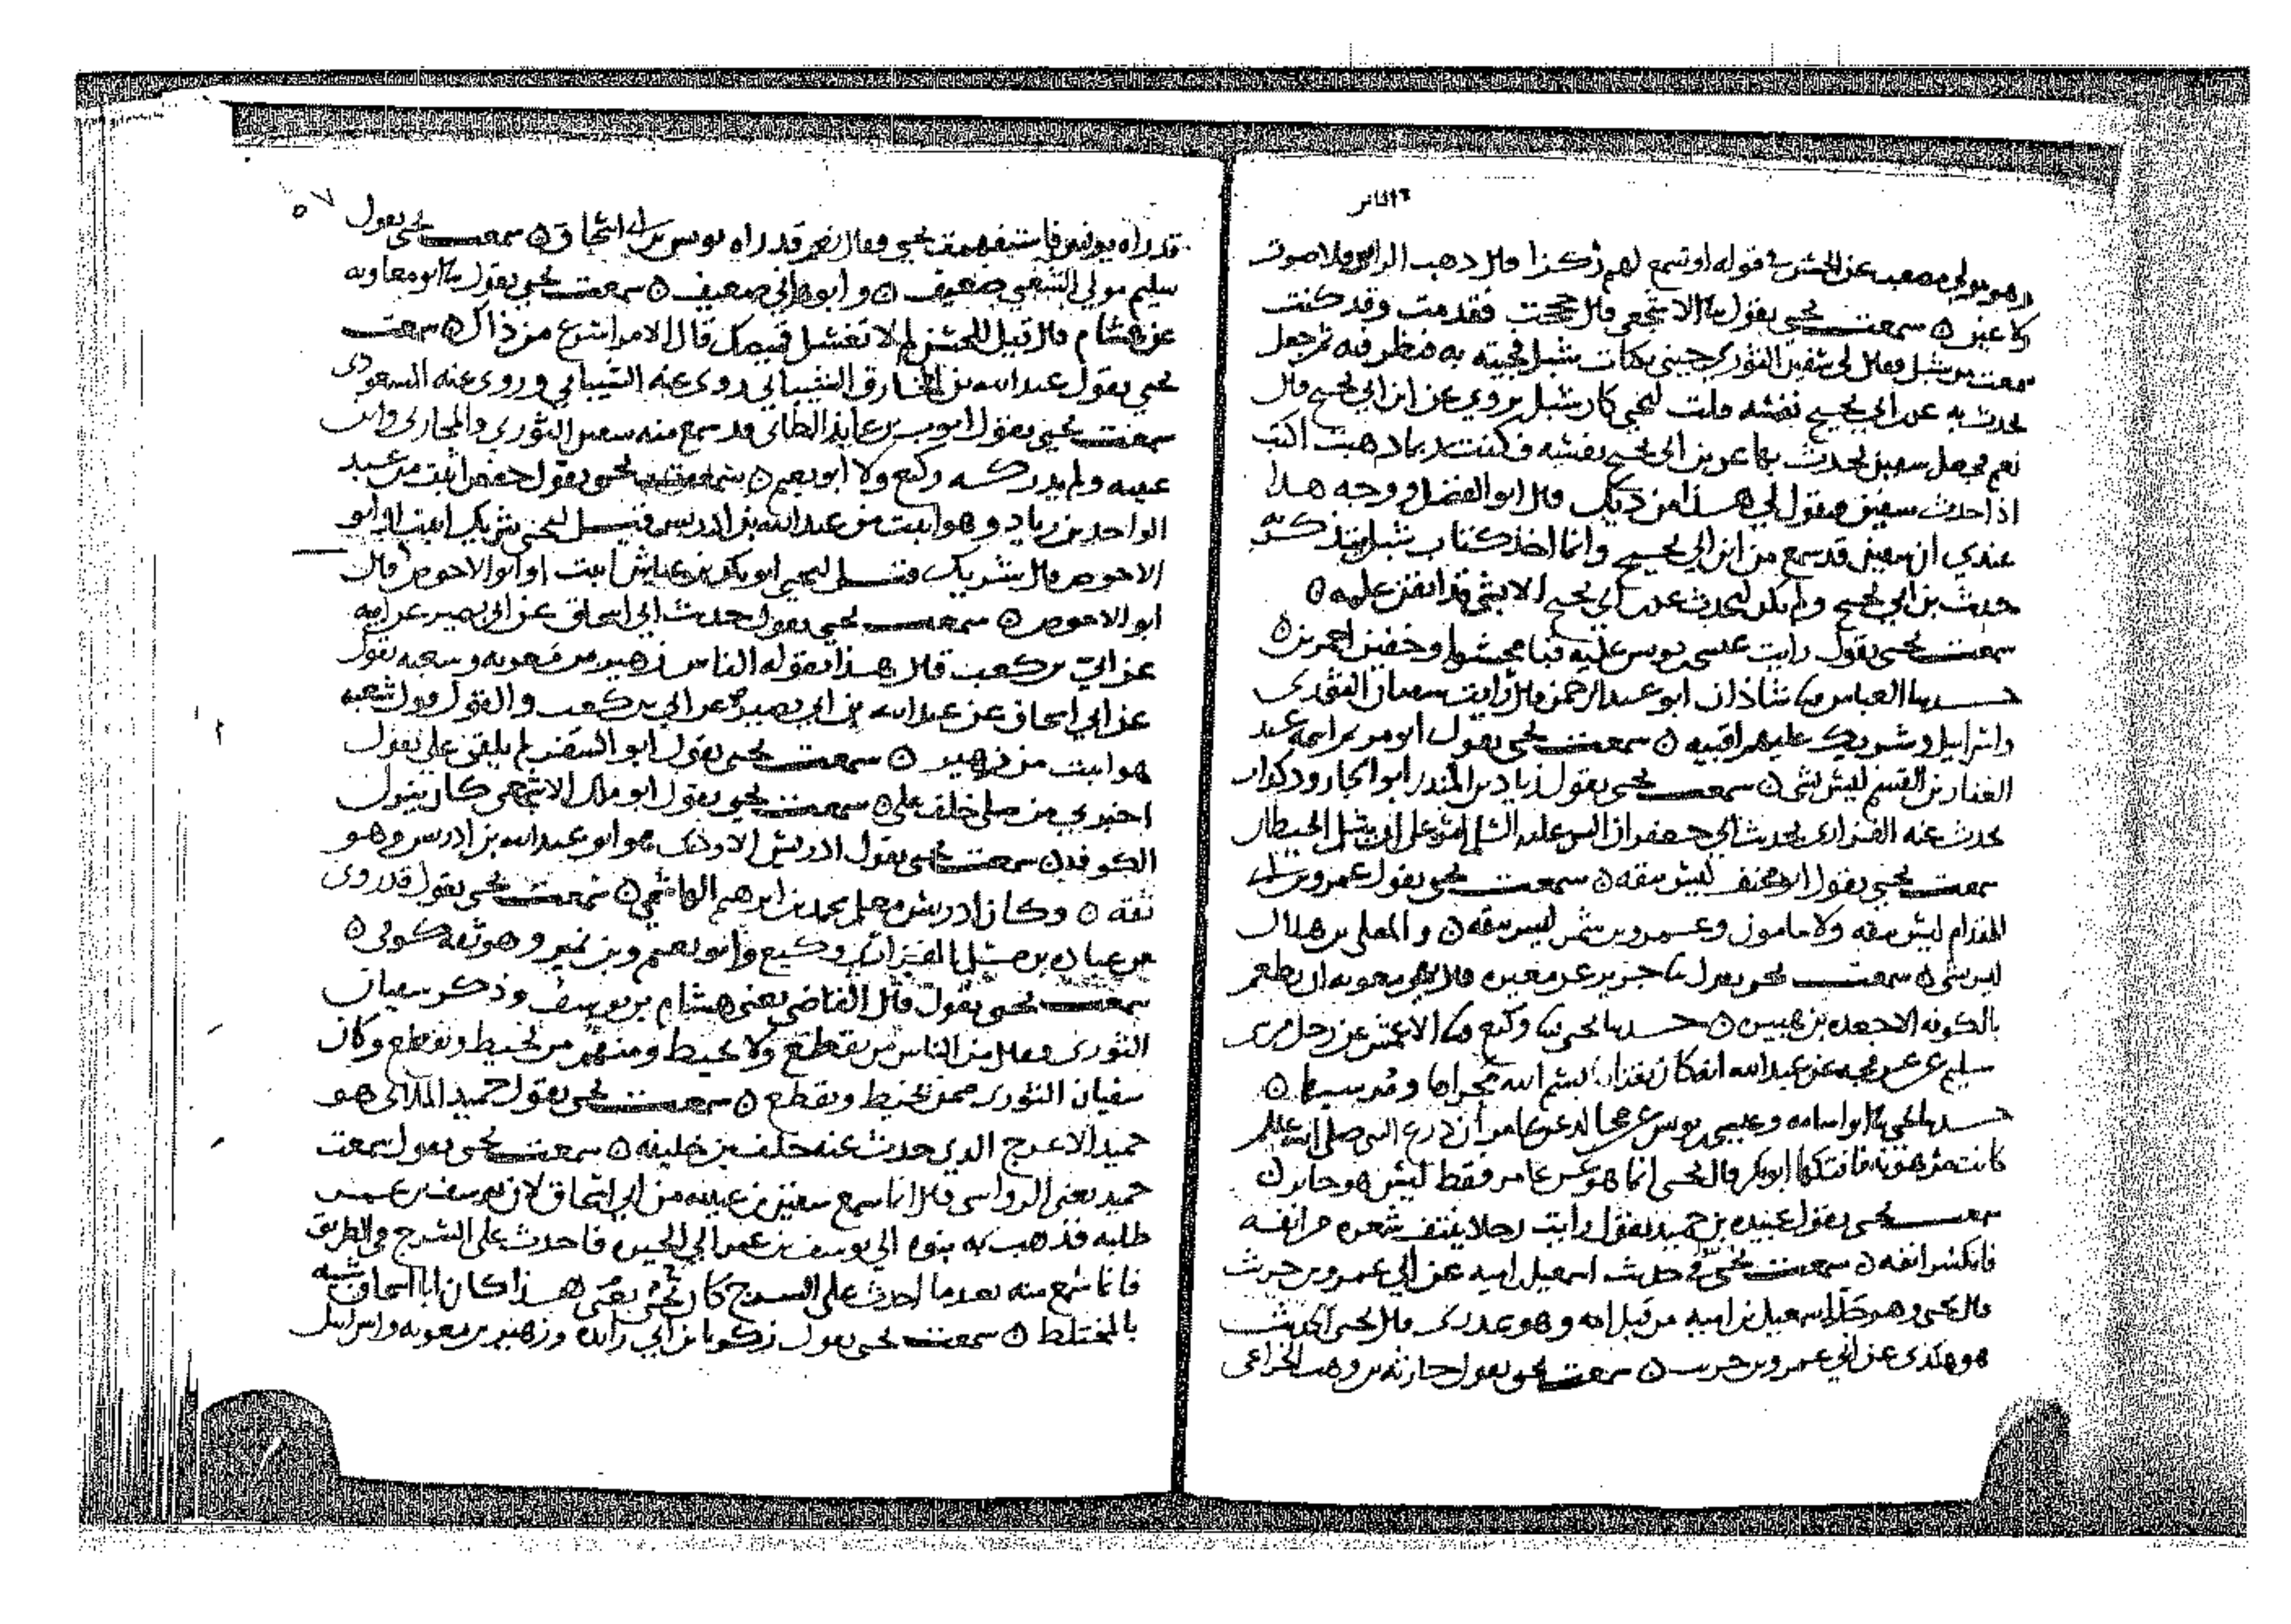 وهو مولى مصعب عن الحسن في قوله او تسمع لهم ركزا قال ذهب الناس فلا صوت
ولا عين ٥ سمعت يحيى يقول نا الاشجعي قال حججت فقدمت وقد كنت
سمعت من شبل فقال لي سفين الثوري جيني بكتاب شبل فجيته به فنظر فيه ثم جعل
يحدث به عن ابن ابي نجيح نفسه قلت ليحيى كان شبل يروي عن ابن ابي نجيح قال
نعم فجعل سفين يحدث بها عن ابن ابي نجيح نفسه فكنت ربما ذهبت اكتب
اذا حدث سفين فيقول لي هذا من ذيك قال ابو الفضل ووجه هذا
عندي ان سفين قد سمع من ابن ابي نجيح وانما اخذ كتاب شبل
حديث بن ابي نجيح ولم يكن يحدث عن ابن ابي نجيح الا بشي قد اتقن علمه ٥
سمعت يحيى يقول رايت عيسى بن يونس عليه قبا محشوا وخفين احمرين ٥
حدثنا العباس نا شاذان ابو عبد الرحمن قال رايت سفيان الثوري
واسرايل وشريك عليهم اقبيه ٥ سمعت يحيى يقول ابو مريم اسمه عبد
الغفار بن القسم ليس بشي ٥ سمعت يحيى يقول زياد بن المنذر ابو الجارود كذاب
يحدث عنه الفزاري بحديث ابي جعفر ان النبي عليه السلم امر عليا ان يثلم الحيطان
سمعت يحيى يقول ابو مخنف ليس بثقه ٥ سمعت يحيى يقول عمرو بن ابي
المقدام ليس بثقه ولا مامون وعمرو بن شمر ليس بثقه ٥ والمعلى بن هلال
ليس بشي ٥ سمعت يحيى يقول نا جرير عن مغيره قال
بالكوفه الا جعده بن هبيره ٥ حدثنا يحيى نا وكيع نا الاعمش عن رجل من بني
سليم عن عبد الله انه كان يقرا بسم الله مجراها ومرسيها ٥
حدثنا يحيى نا ابو اسامه وعيسى بن يونس عن مجالد عن عامر ان درع النبي صلى الله عليه
كانت مرهونه فافتكها ابو بكر قال يحيى انما هو عن عامر فقط ليس هو جابر ٥
سمعت يحيى يقول عبيده بن حميد يقول رايت رجلا ينتف شعره من انفه
فانكسر انفه ٥ سمعت يحيى في حديث اسمعيل بن اميه عن ابي عمرو بن حريث
قال يحيى وهو جد اسمعيل بن اميه من قبل امه وهو عذري قال يحيى الحديث
هو هكذى عن ابي عمرو بن حريث ٥ سمعت يحيى يقول حارثه بن وهب الخزاعي
قد راه يونس فاستفهمت يحيى فقال نعم قد راه يونس بن ابي اسحاق ٥ سمعت يحيى يقول
سليم مولى الشعبي ضعيف ٥ وابو هاني ضعيف ٥ سمعت يحيى يقول نا ابو معاويه
عن هشام قال قيل للحسن لم لا تغسل قميصك قال الامر اسرع من ذاك ٥ سمعت
يحيى يقول عبد الله بن المخارق الشيباني روى عنه الشيباني وروى عنه المسعودي
سمعت يحيى يقول ايوب بن عايذ الطائي قد سمع منه سفين الثوري والمحاربي وابن
عيينه ولم يدركه وكيع ولا ابو نعيم ٥ سمعت يحيى يقول حفص اثبت من عبد
الواحد بن زياد وهو اثبت من عبد الله بن ادريس فقيل ليحيى شريك اثبت او ابو
الاحوص قال شريك فقيل ليحيى ابو بكر بن عياش اثبت او ابو الاحوص قال
ابو الاحوص ٥ سمعت يحيى يقول حديث ابي اسحاق عن ابي بصير عن ابيه
عن ابي بن كعب قال هذا يقوله الناس زهير بن معويه وشعبه يقول
عن ابي اسحاق عن عبد الله بن ابي بصير عن ابي بن كعب والقول قول شعبه
هو اثبت من زهير ٥ سمعت يحيى يقول ابو السفر لم يلق علي يقول
اخبرني من صلى خلف علي ٥ سمعت يحيى يقول ابو مالك الاشجعي كان ينزل
الكوفه ٥ سمعت يحيى يقول ادريس الاودي هو ابو عبد الله بن ادريس وهو
ثقه ٥ وكان ادريس معلم محمد بن ابرهيم الهاشمي ٥ سمعت يحيى يقول قد روى
عن عبان بن مسلم الفزاري وكيع وابو نعيم وبن نمير وهو ثقه كوفي ٥
سمعت يحيى يقول قال القاضي يعني هشام بن يوسف وذكر سفيان
الثوري فقال من الناس من يقطع ولا يخيط ومنهم من يخيط ويقطع وكان
سفيان الثوري ممن يخيط ويقطع ٥ سمعت يحيى يقول حميد الملائي هو
حميد الاعرج الذي حدث عنه خلف بن خليفه ٥ سمعت يحيى يقول سمعت
حميد يعني الرواسي قال انما سمع سفين بن عيينه من ابي اسحاق لان يوسف بن عمر
طلبه فذهب به بنوه الى يوسف بن عمر الى الحيره فاحدث على السرج في الطريق
فانما سمع منه بعدما احدث على السرج كان يحيى يعني هذا كان ابا اسحاق شبه
بالمختلط ٥ سمعت يحيى يقول زكريا بن ابي زايده وزهير بن معويه واسرايل